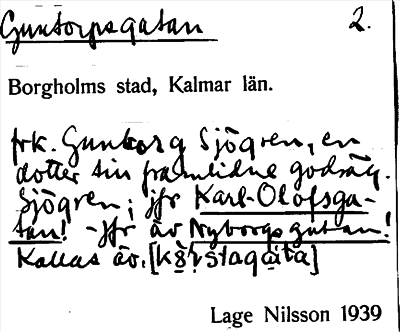 Guntorpsgatan 2.
Borgholms stad, Kalmar län.
frk. Gunborg Sjögren, en
dotter till framlidne godsäg.
Sjögren; jfr Karl-Olofsga-
tan! - Jfr äv Nyborgsgatan!
Kallas äv.
Lage Nilsson 1939